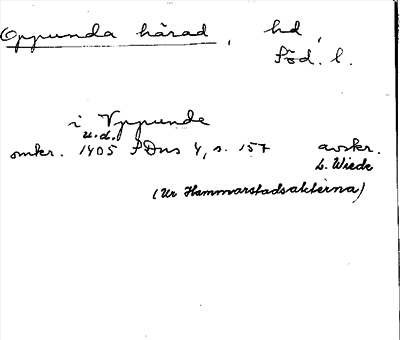 Oppunda härad, hd,
Söd. l.
i Vppunde
u.d.
omkr. 1405 SDns 4, s. 157 avskr.
L. Wiede
(Ur Hammarstadsakterna)